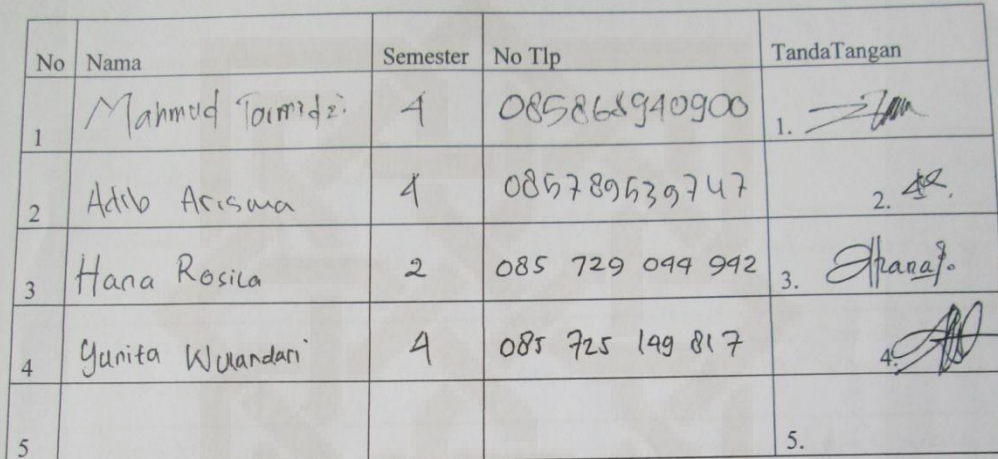 No Nama Semester No Tlp TandaTangan
1 Mahmud Tarmidzi 4 085868940900 1.
2 Adib Arisma 4 085789539747 2.
3 Hana Rosila 2 085 729 044 942 3.
4 Yunita Wulandari 4 085 725 149 817 4.
5 5.